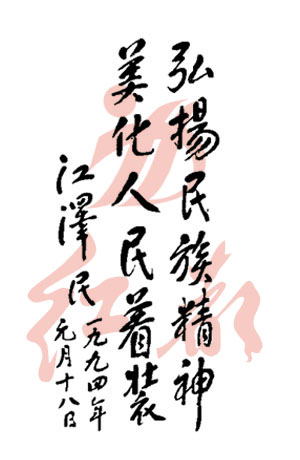 弘揚民族精神
美化人民着装
江澤民
一九九四年
元月十八日